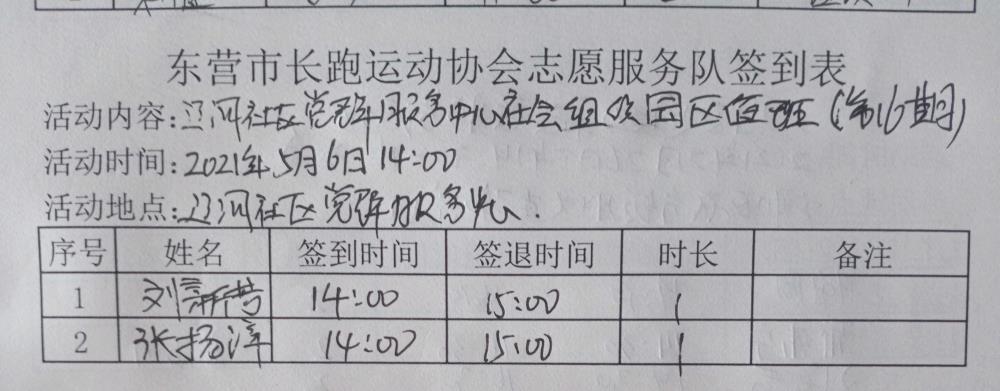 东营市长跑运动协会志愿服务队签到表
活动内容:辽河社区党群服务中心社会组织园区值班(第16期)
活动时间:2021年5月6日14:00
活动地点:辽河社区党群服务中心.
序号 姓名 签到时间 签退时间 时长 备注
1 刘 14:00 15:00 1
2 张扬洋 14:00 15:00 1